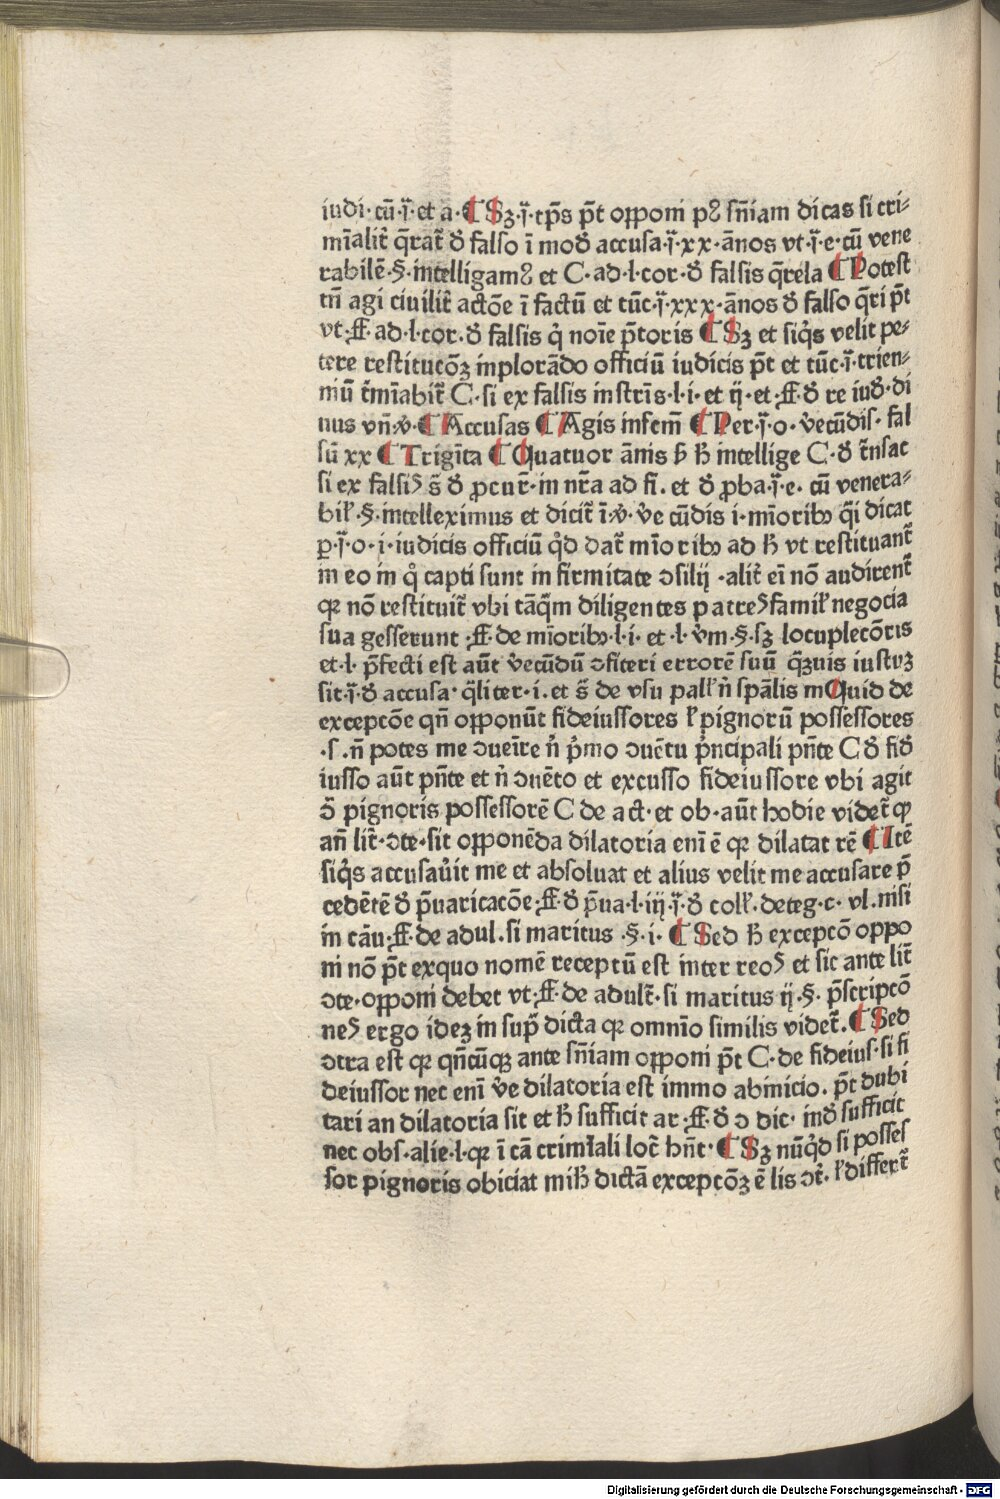 iudi·cū·ī·et a·¶ Sꝫ·ī·tp̄s p̄t opponi pꝰ sn̄iam dicas si cri⸗
mīalit᷑ q̄rat᷑ đ falso ī mođ accusa·ī·xx·ānos vt·ī·e·cū vene
rabilē·§·intelligamꝰ et C·ad·l·cor·đ falsis q̄rela ¶ Potest
tn̄ agi ciuilit᷑ actōe ī factū et tūc·ī·xxx·ānos đ falso q̄ri p̄t
vt·ff·ad·l·cor·đ falsis q̇ noīe p̄toris ¶ Sꝫ et siq̇s velit pe⸗
tere restitucōꝫ inplorādo officiū iudicis p̄t et tūc·ī·trien⸗
niū t᷑mīabit᷑ C·si ex falsis instr̄is·l·i·et ij·et·ff·đ re iuđ·di
uus vn̄·v̇·¶ Accusas ¶ Agis infem̄ ¶ Per·ī·o·v̇ecūdis·fal
sū xx ¶ Trigīta ¶ Quatuor ānis ƀ ħ intellige C·đ t᷑nsac
si ex falsiꝰ s̄ đ ꝓcur᷑·in nr̄a ad fi·et đ ꝓba·ī·e·cū venera⸗
bil̷·§·intelleximus et dicit᷑ ī·v̇·v̇e cūdis i·mīoribꝫ q̄i dicat
ꝑ·ī·o·i·iudicis officiū q̇d dat᷑ mīoribꝫ ad ħ vt restituant᷑
in eo in q̇ capti sunt in firmitate ↄsilij·alit᷑ eī nō audirent᷑
qꝛ nō restituit᷑ vbi tāq̄m diligentes patresfamil̷ negocia
sua gesserunt·ff·de mīoribꝫ·l·i·et·l·v̇m·§·sꝫ locupletōris
et·l·p̄fecti est aūt v̇ecūdū ↄfiteri errorē suū q̄ꝫuis iustꝰ
sit·ī·đ accusa·q̄liter·i·et s̄ de vsu pall̷ n̄ spālis m Quid de
exceptōe qn̄ opponūt fideiussores l̷ pignorū possessores
·s·n̄ potes me ↄueīre n̄ ṗmo ↄuētu ṗncipali pn̄te C đ fiđ
iusso aūt pn̄te et n̄ ↄuēto et excusso fideiussore vbi agit
ↄ̄ pignoris possessorē C de act·et ob·aūt hodie videt᷑ qꝫ
an̄ lit᷑·ↄte·sit opponēda dilatoria enī ē qꝛ dilatat rē ¶ Itē
siq̇s accusau̇it me et absoluat et alius velit me accusare p̄
cedētē đ p̄uaricacōe·ff·đ p̄ua·l·iij·ī·đ coll̷·deteg·c·vl·nisi
in cāu·ff·de adul·si maritus·§·i·¶ Sed ħ exceptō oppo
ni nō p̄t exquo nomē receptū est inter reos et sic ante lit᷑
ↄte·opponi debet vt·ff·de adult᷑·si maritus ij·§·p̄scriptō
nes ergo ideꝫ in sup̄ dicta qꝛ omnīo similis videt᷑·¶ Sed
ↄtra est qꝛ qn̄cūqꝫ ante sn̄iam opponi p̄t C·de fideius·si fi
deiussor nec enī v̇e dilatoria est immo abinicio·p̄t dubi
tari an dilatoria sit et ħ sufficit ar·ff·đ ↄ dic·inđ sufficit
nec obs·alie·l·qꝛ ī cā crimīali loc᷑ hn̄t·¶ Sꝫ nūq̇d si posses
sor pignoris obiciat miħ dictā exceptōꝫ ē lis ↄt᷑·l̷ differt᷑
Digitalisierung gefördert durch die Deutsche Forschungsgemeinschaft - DFG